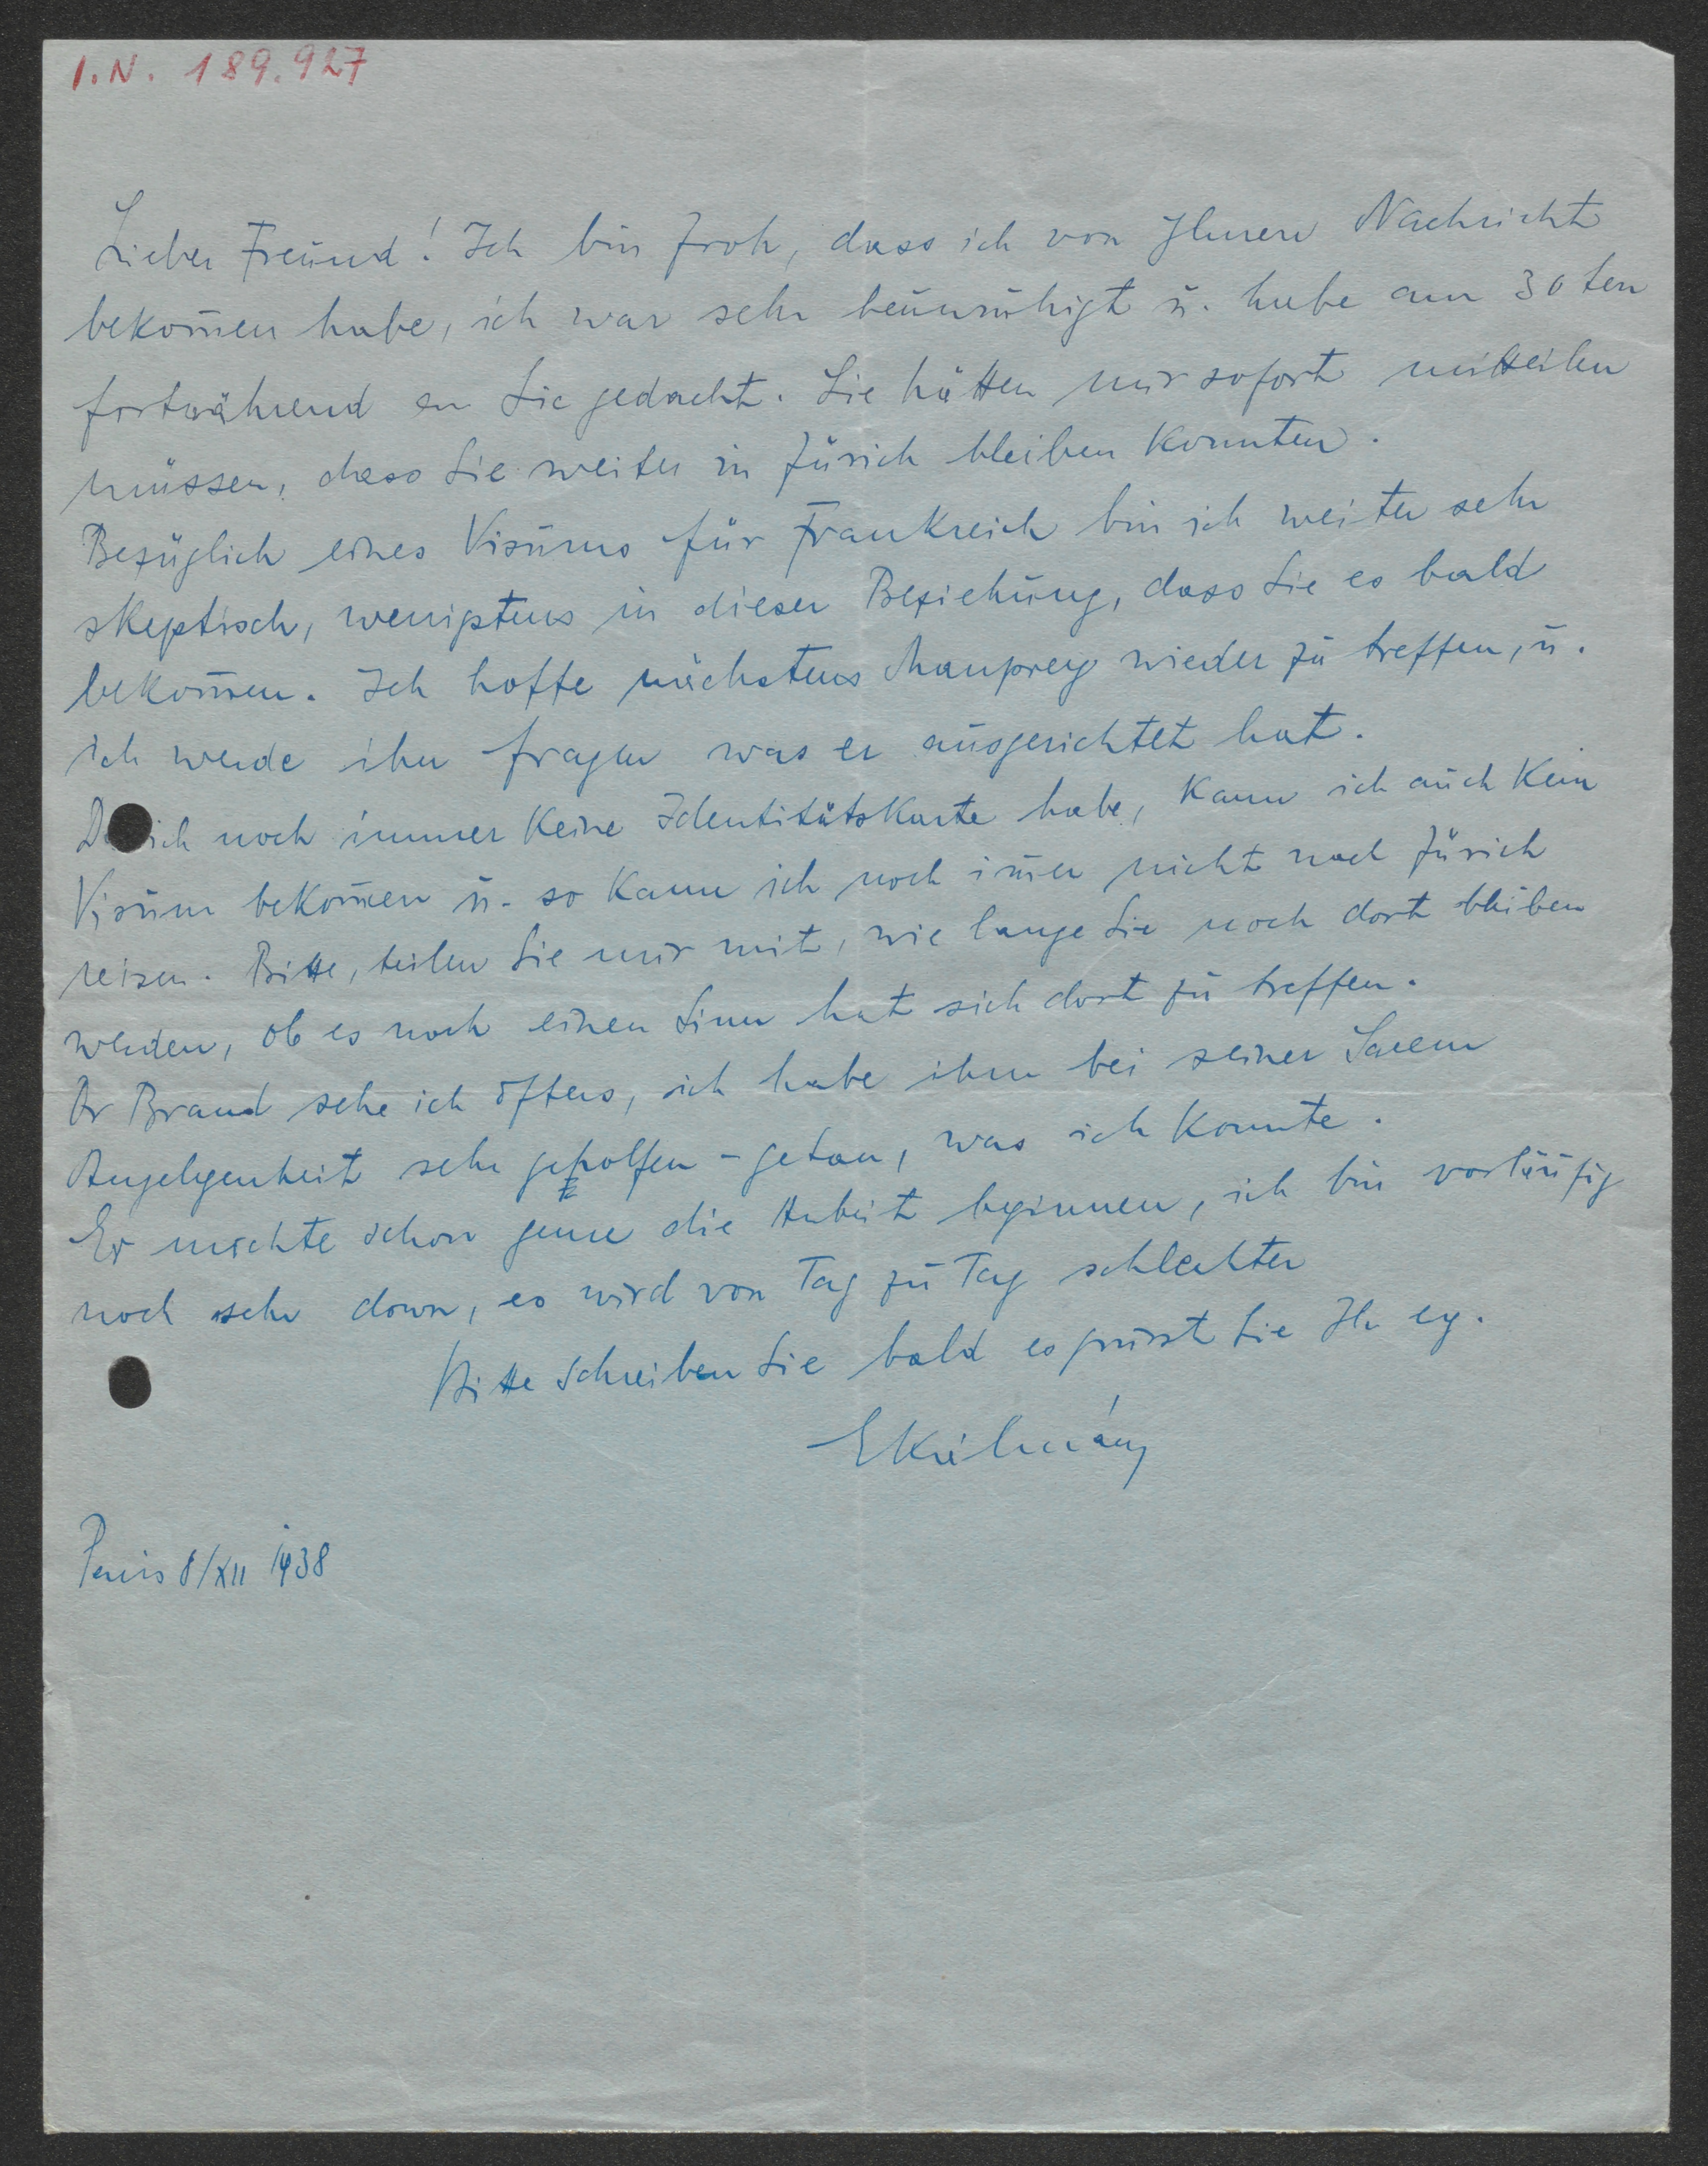 I.N. 189.927
Lieber Freund! Ich bin froh, dass ich von Ihnen Nachricht
bekom̄en habe, ich war sehr beunruhigt u. habe am 30ten
fortwährend an Sie gedacht. Sie hätten mir sofort mitteilen
müssen, dass Sie weiter in Zürich bleiben konnten.
Bezüglich eines Visums für Frankreich bin ich weiter sehr
skeptisch, wenigstens in dieser Beziehung, dass Sie es bald
bekom̄en. Ich hoffe nächstens Mauprey wieder zu treffen, u.
ich werde ihn fragen was er ausgerichtet hat.
Da ich noch immer keine Identitätskarte habe, kann ich auch kein
Visum bekom̄en u. so kann ich noch im̄er nicht nach Zürich
reisen. Bitte, teilen Sie mir mit, wie lange Sie noch dort bleiben
werden, ob es noch einen Sinn hat sich dort zu treffen.
Dr Brand sehe ich öfters, ich habe ihm bei seiner Sacem
Angelegenheit sehr geholfen – getan, was ich konnte.
Er möchte schon gerne die Arbeit beginnen, ich bin vorläufig
noch sehr down, es wird von Tag zu Tag schlechter
Bitte schreiben Sie bald es grüsst Sie Ihr erg.
EKálmán
Paris 8/XII 1938